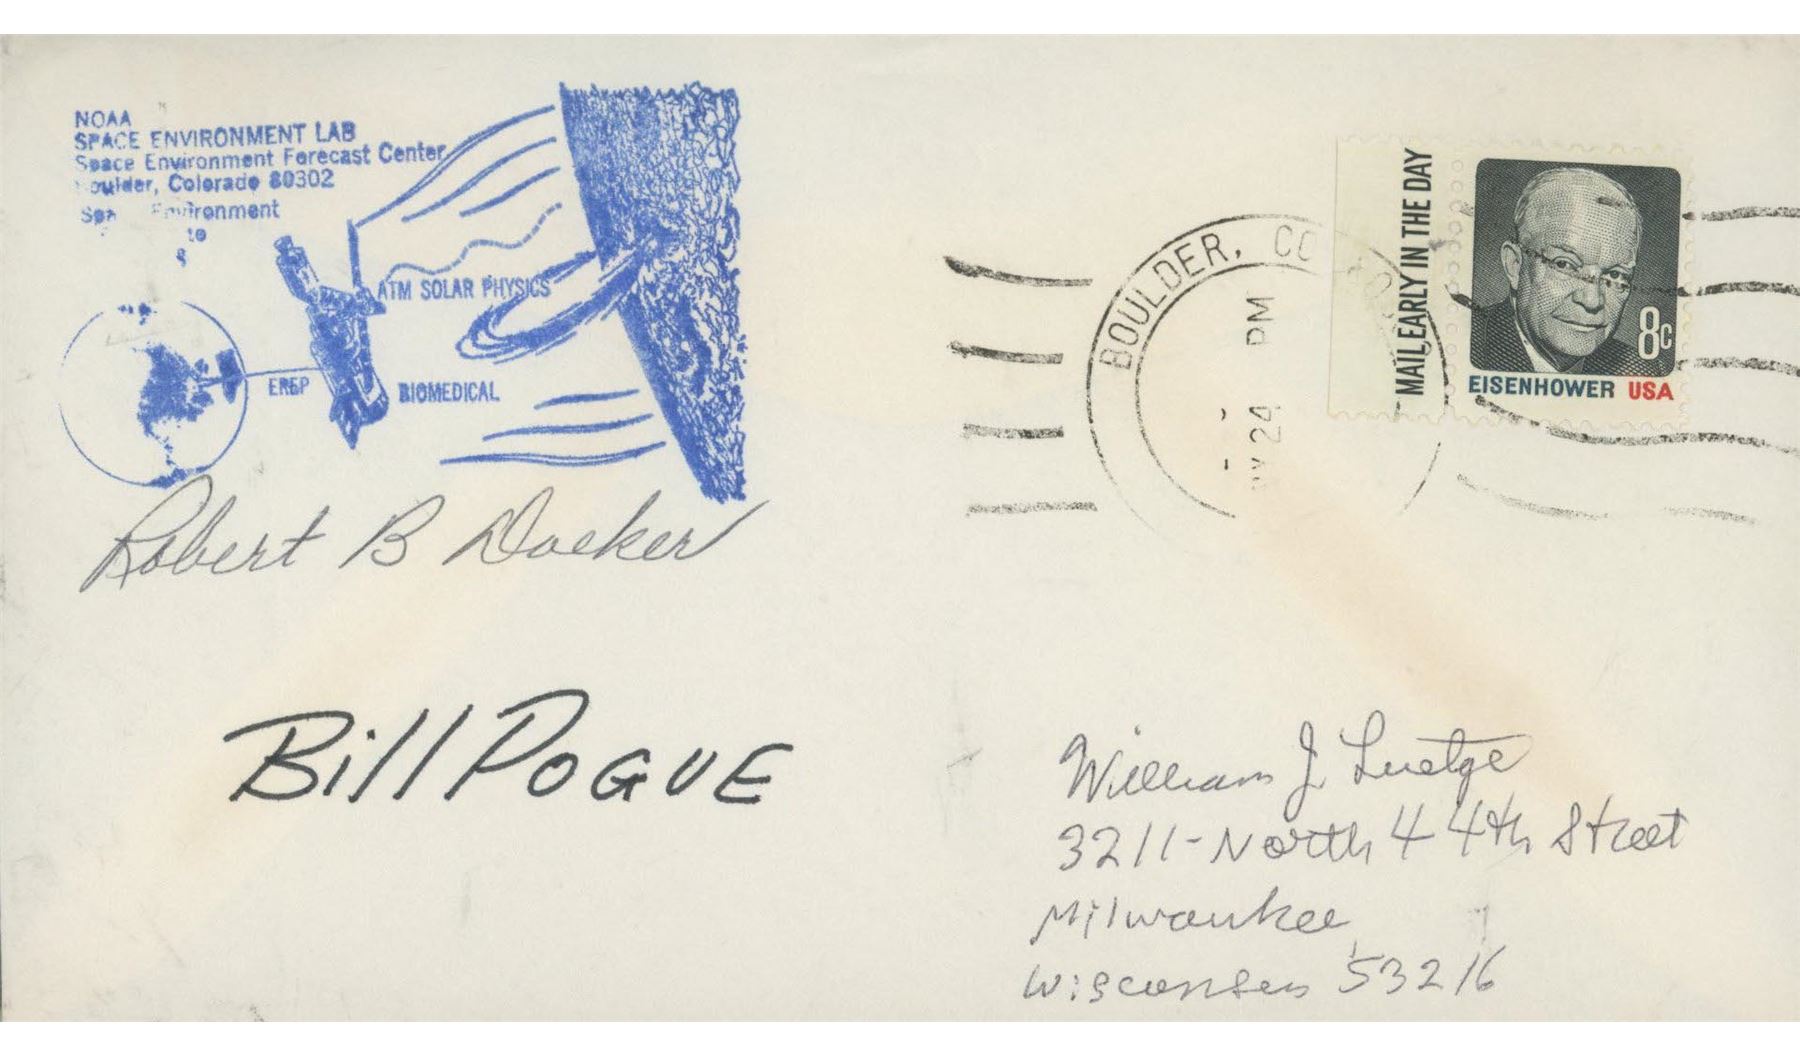 NOAA
SPACE ENVIRONMENT LAB
Space Environment Forecast Center
Boulder, Colorado 80302
Environment
ATM SOLAR PHYSICS
EREP
BIOMEDICAL
BOULDER,
PM
24
MAIL EARLY IN THE DAY
8c
EISENHOWER USA
Robert B Doeker
Bill POGUE
William J. Luetge
3211-North 44th Street
Milwaukee
Wisconsen 53216